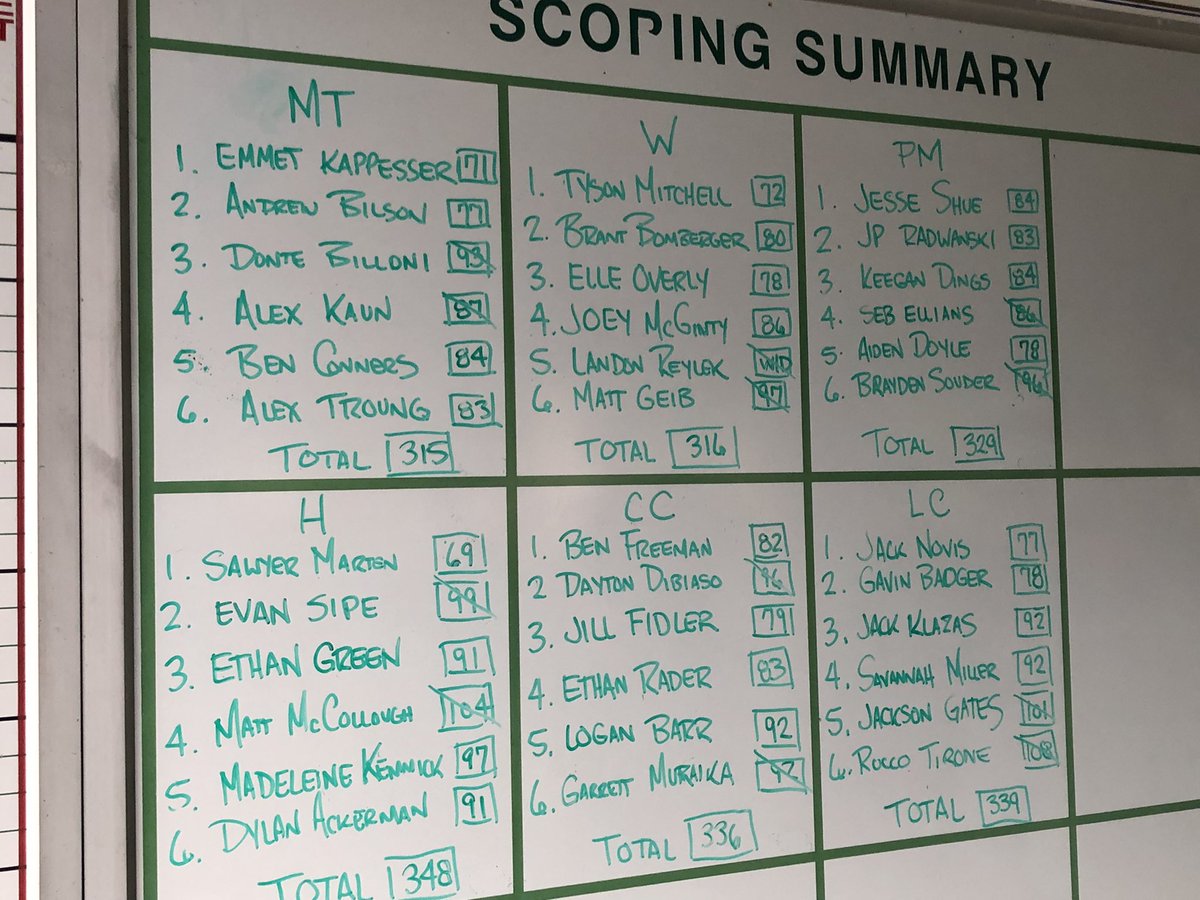 SCOPING SUMMARY
MT
1. EMMET KAPPESSER 71
2. ANDREW BILSON 77
3. DONTE BILLONI 93
4. ALEX KAUN 87
5. BEN CONNERS 84
6. ALEX TROUNG 83
TOTAL 315
W
1. TYSON MITCHELL 72
2. BRANT BOMBERGER 80
3. ELLE OVERLY 78
4. JOEY McGINTY 86
5. LANDON REYLEK W/D
6. MATT GEIB 97
TOTAL 316
PM
1. JESSE SHUE 84
2. JP RADWANSKI 83
3. KEEGAN DINGS 84
4. SEB ELLIANS 86
5. AIDEN DOYLE 78
6. BRAYDEN SOUDER 96
TOTAL 329
H
1. SAWYER MARTEN 69
2. EVAN SIPE 99
3. ETHAN GREEN 91
4. MATT McCOLLOUGH 104
5. MADELEINE KENNICK 97
6. DYLAN ACKERMAN 91
TOTAL 348
CC
1. BEN FREEMAN 82
2 DAYTON DIBIASO 96
3. JILL FIDLER 79
4. ETHAN RADER 83
5. LOGAN BARR 92
6. GARRETT MURAIKA 92
TOTAL 336
LC
1. JACK NOVIS 77
2. GAVIN BADGER 78
3. JACK KLAZAS 92
4. SAVANNAH MILLER 92
5. JACKSON GATES 101
6. ROCCO TIRONE 108
TOTAL 339